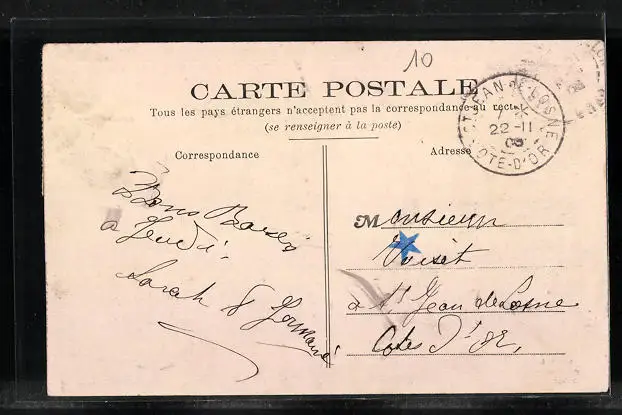 10
CARTE POSTALE
Tous les pays étrangers n'acceptent pas la correspondance au recto
(se renseigner à la poste)
Correspondance
Adresse
ST JEAN-DE-LOSNE
22-11
COTE-D'OR
Bons Baisers
a Jeudi.
Sarah & Germaine
Monsieur
Voisot
à St Jean de Losne
Cote D'or,